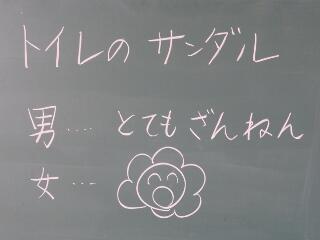 トイレの サンダル
男‥‥ とてもざんねん
女‥‥